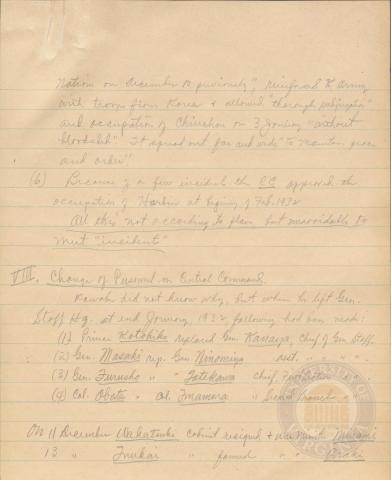 Nations on December 10 previously", reinforced K. Army
with troops from Korea & allowed "thorough subjugation"
and occupation of Chinchou on 3 January "without
bloodshed". It spread out far and wide "to maintain peace
and order".
(6) Because of a few incidents the CC approved the
occupation of Harbin at beginning of Feb. 1932
All this "not according to plan but unavoidable to
meet "incidents"
VIII. Change of Personnel on Central Command.
Kawabe did not know why, but when he left Gen.
Staff Hq. at end January, 1932 following had been made:
(1) Prince Kotohito replaced Gen. Kanaya, Chief of Gen. Staff.
(2) Gen. Masaki rep. Gen Ninomiya asst. " " " ".
(3) Gen. Furusho " " Tatekawa Chief, First
(4) Col. Obata " Col. Imamura " Second
On 11 December Wakatsuki cabinet resigned & War Minister Minami
13 " Inukai " formed " " Araki